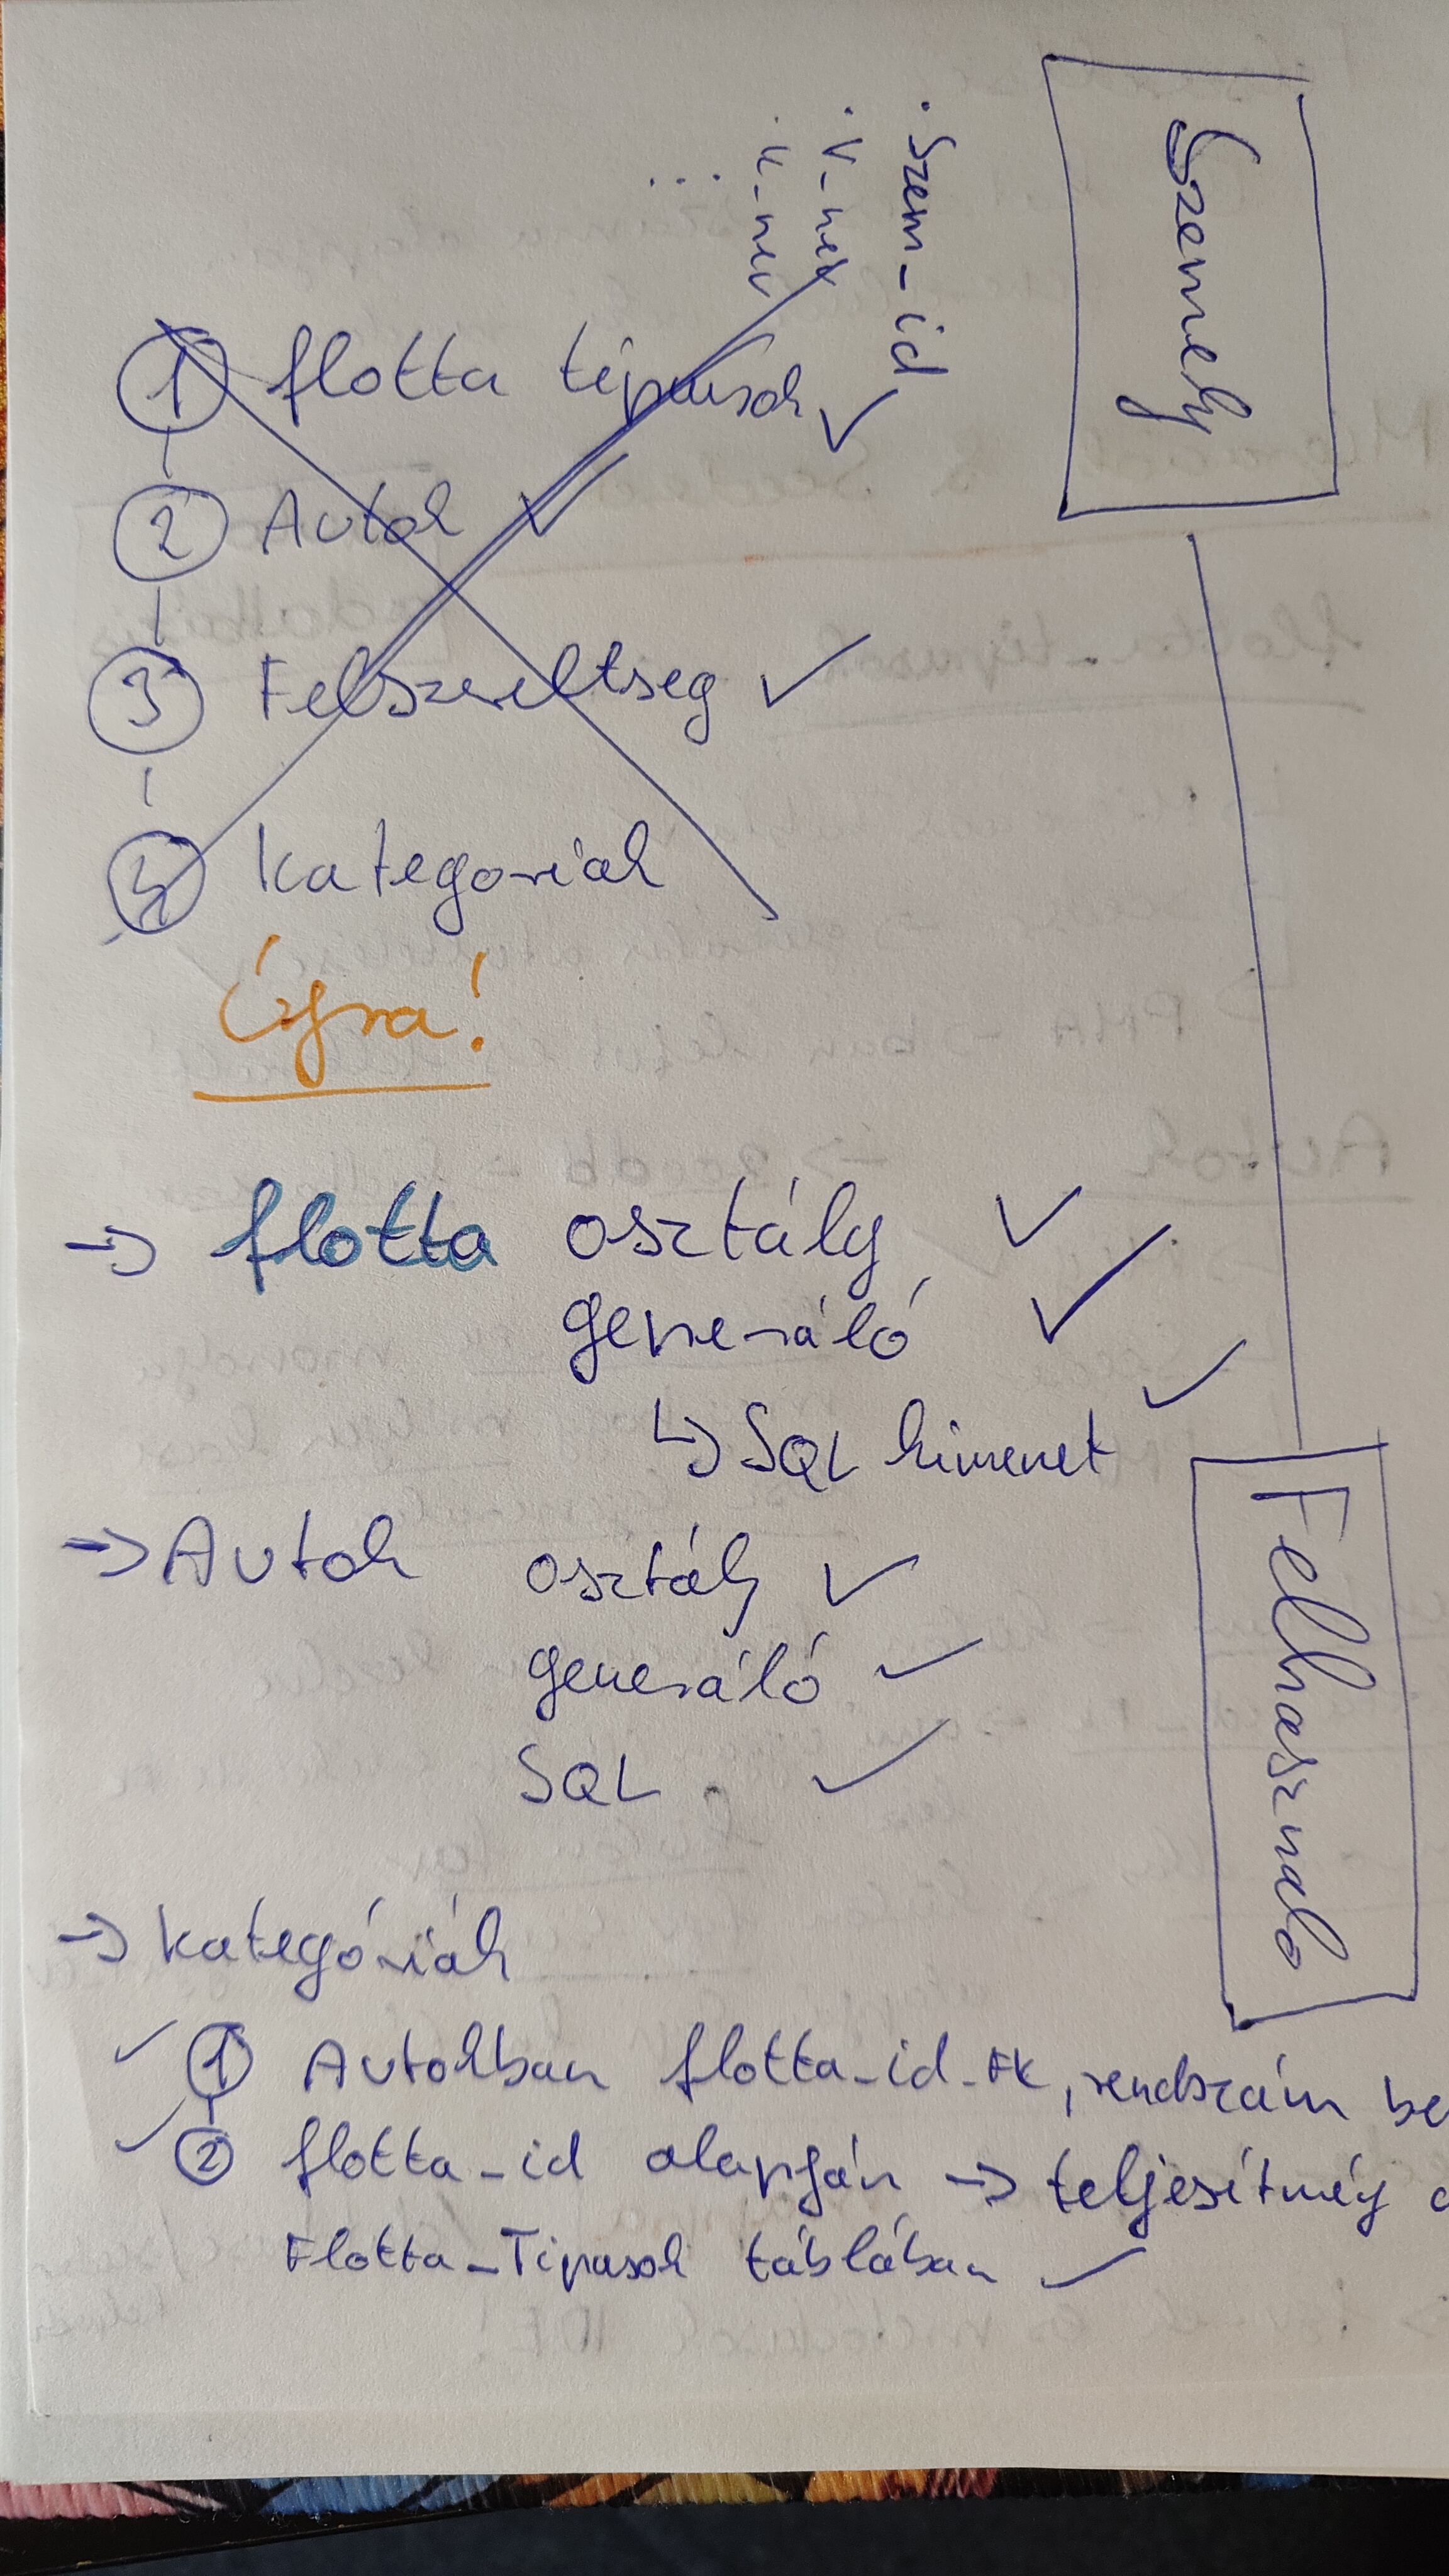 Szemely
. Szem_id
. V_nev
. K_nev
...
① flotta tipusok ✓
② Autok ✓
③ Felszereltseg ✓
④ Kategoriak
Újra!
→ flotta osztály ✓
generáló ✓
↳ SQL kimenet ✓
→ Autok osztály ✓
generáló ✓
SQL ✓
→ kategóriák
✓ ① Autokban flotta_id_fk, rendszám be
✓ ② flotta_id alapján → teljesítméy
Flotta_Tipusok táblában ✓
Felhasznalo